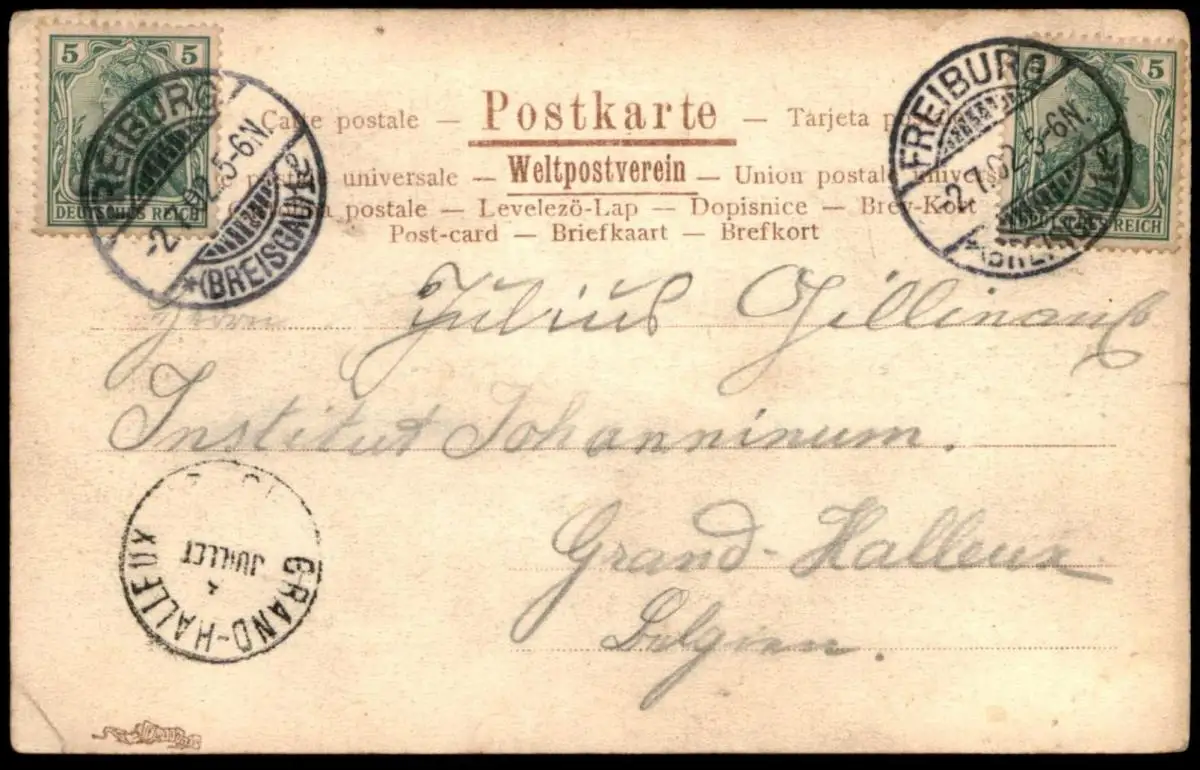 5 5
DEUTSCHES REICH
FREIBURG
-2.7.02.5-6N.
*(BREISGAU)
5
DEUTSCHES REICH
FREIBURG
-2.7.02.5-6N.
*(BREISGAU)
Carte postale — Postkarte — Tarjeta
universale — Weltpostverein — Union postale
postale — Levelezö-Lap — Dopisnice — Brev-Kort
Post-card — Briefkaart — Brefkort
Herrn Julius
Institut Johanninum.
Grand-Halleux
Belgien.
GRAND-HALLEUX
JUILLET